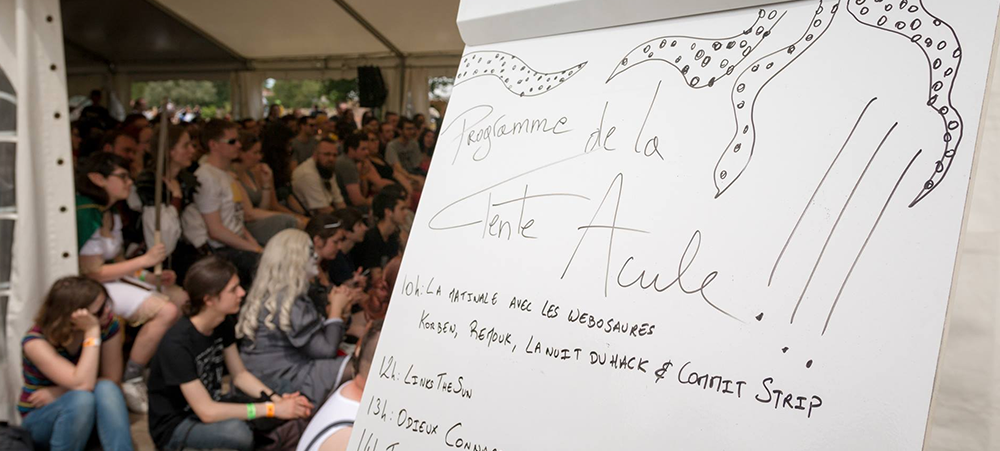 Programme de la
Tente Acule !!!
10h: LA MATINALE AVEC LES WEBOSAURES
KORBEN, REMOUK, LA NUIT DU HACK & COMMIT STRIP
12h: LINKSTHESUN
13h: ODIEUX CONNA
14h